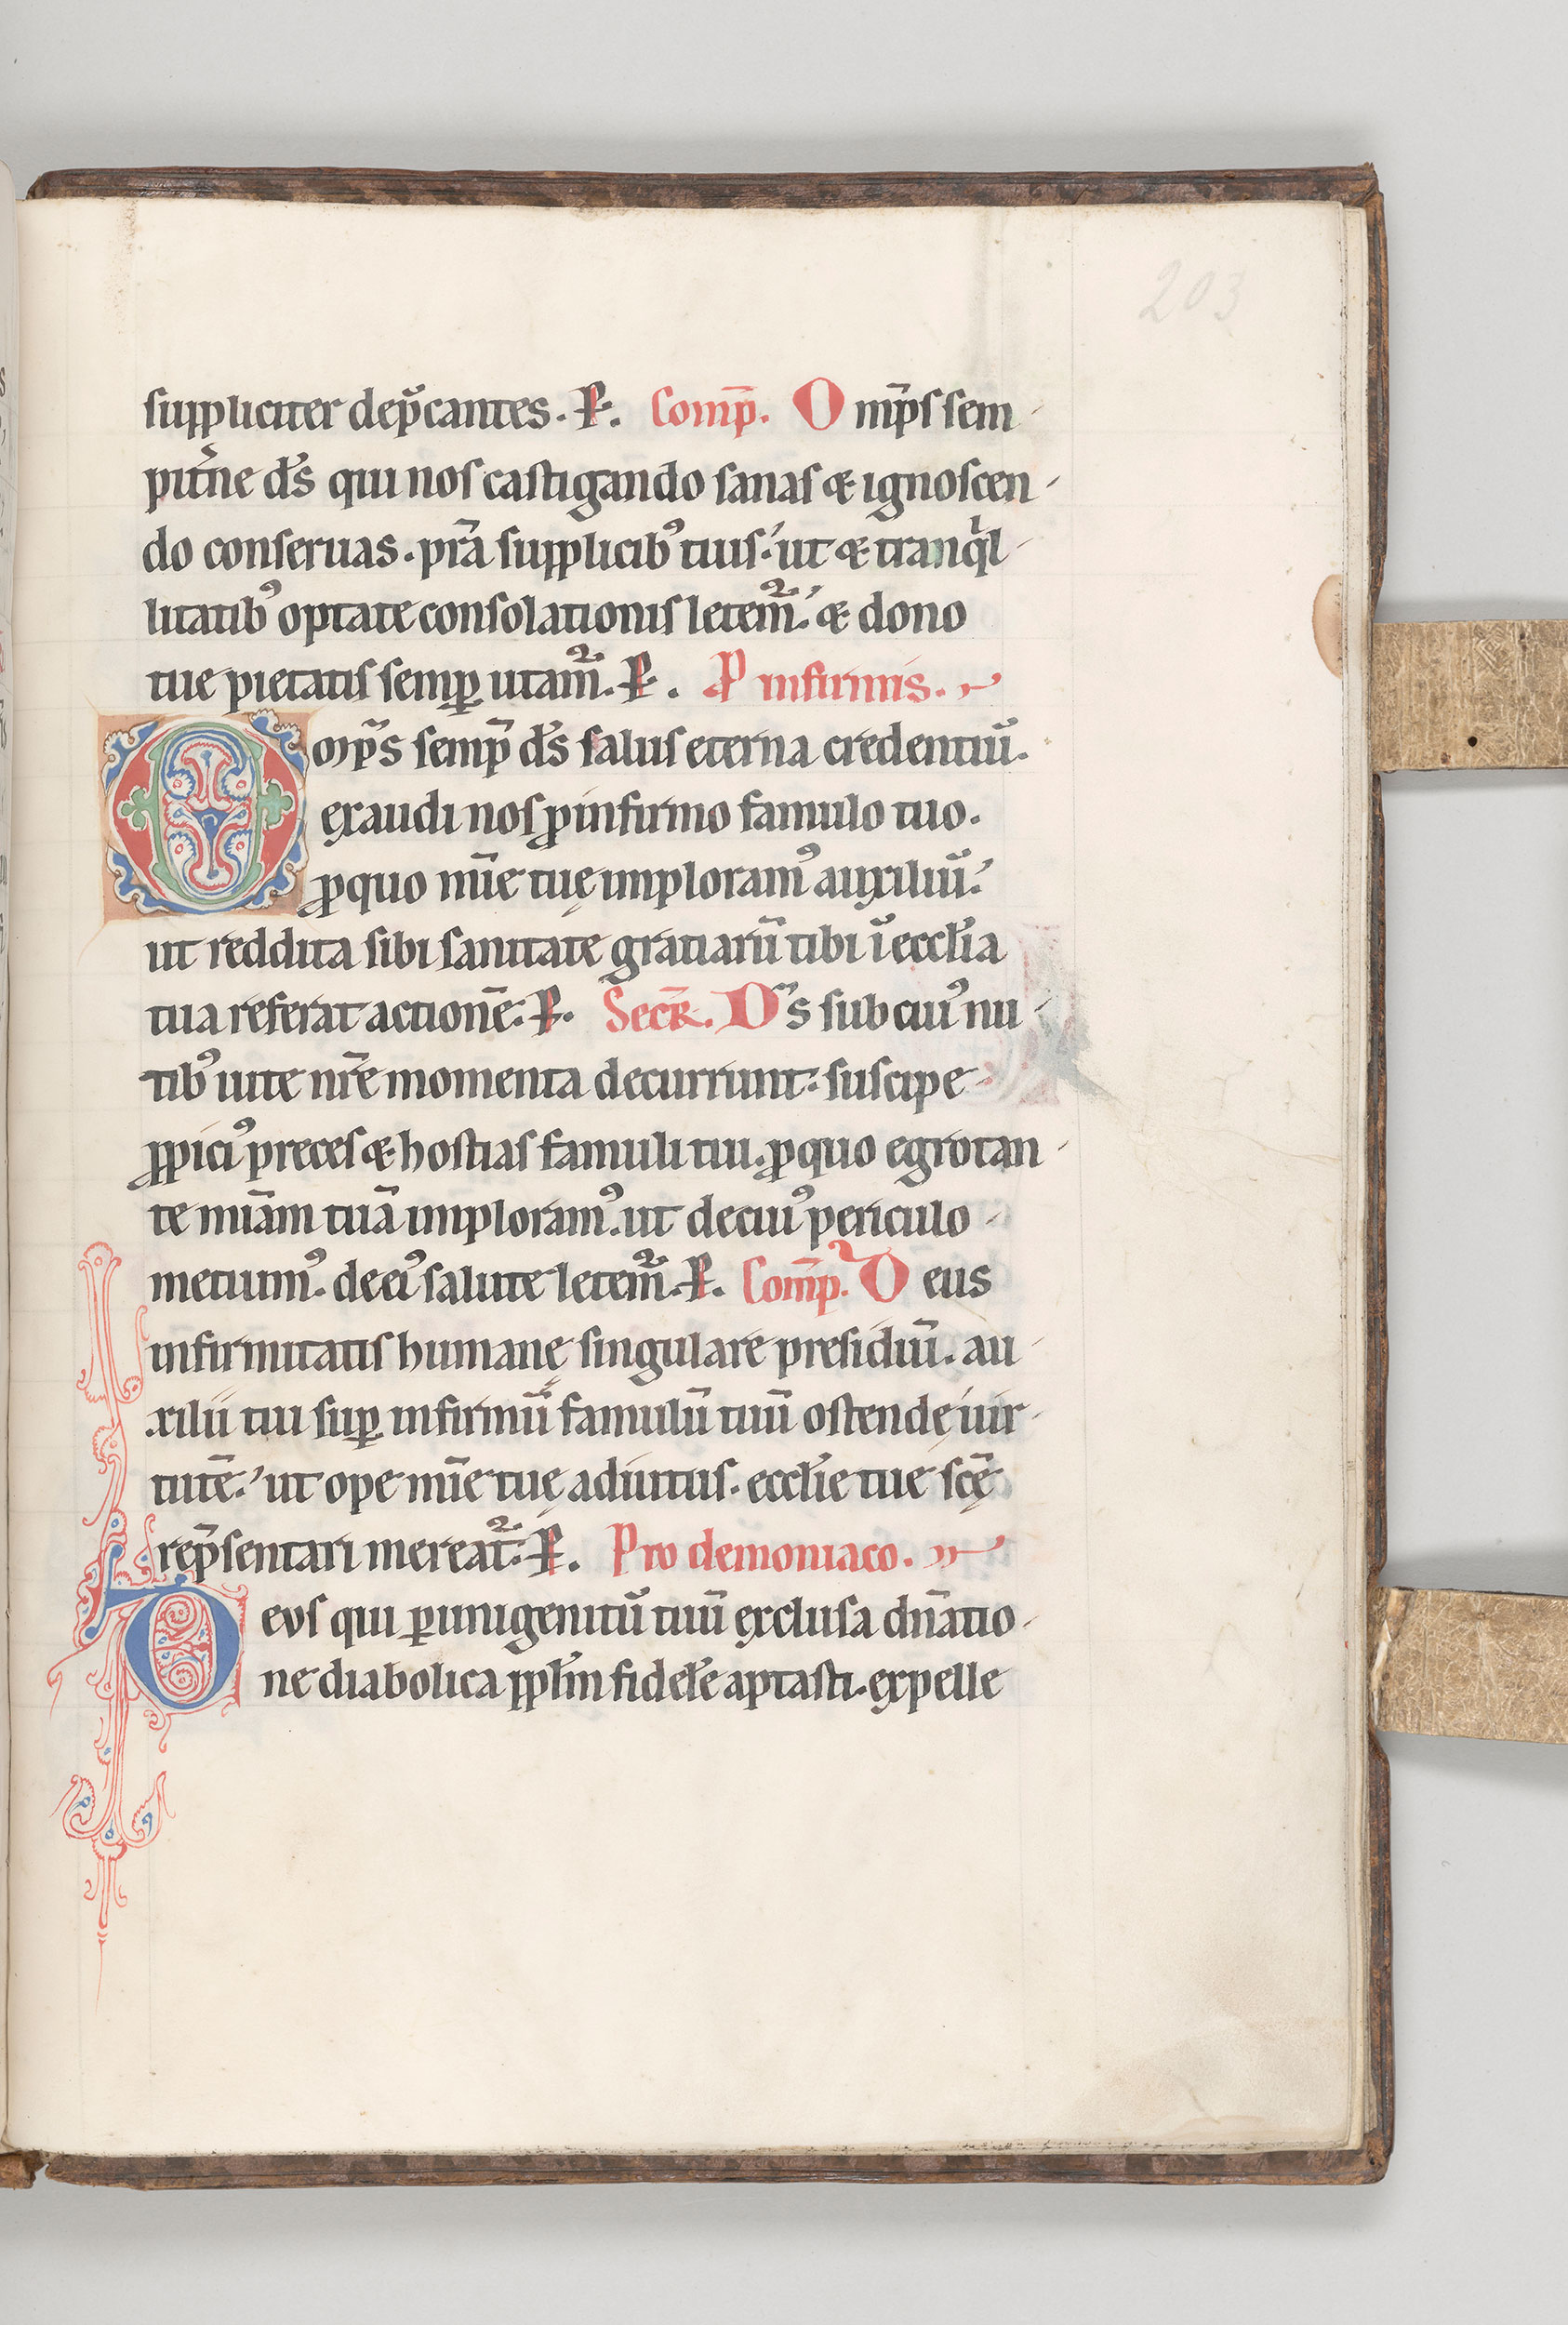 203
suppliciter dep̄cantes. P. Comp̄. O mp̄s sem
pit̄ne d̄s qui nos castigando sanas & ignoscen
do conseruas. pr̄a supplicib⁹ tuis. ut & tranqͥl
litatib⁹ optate consolationis letem̄. & dono
tue pietatis semꝑ utam̄. P. P infirmis.
Omp̄s semp̄ d̄s salus eterna credentiū.
exaudi nos ꝓ infirmo famulo tuo.
ꝓ quo mīe tuę imploram⁹ auxiliū.
ut reddita sibi sanitate gratiarū tibi ī eccl̄ia
tua referat actionē. P. Secr̄. D̄s sub cui⁹ nu
tib⁹ uite nr̄e momenta decurrunt: suscipe
ꝓpici⁹ preces & hostias famuli tui. ꝓ quo egrotan
te mīam tuā imploram⁹. ut de cui⁹ periculo
metuim⁹. de ei⁹ salute letem̄. P. Comp̄. D eus
infirmitatis humanę singulare presidiū. au
xilii tui suꝑ infirmū famulū tuū ostendę uir
tutē. ut ope mīe tuę adiutus. eccl̄ie tue sc̄ę
rep̄sentari mereat̄. P. Pro demoniaco.
Deus qui ꝑ unigenitū tuū exclusa dn̄atio
ne diabolica ppl̄m fidel̄e aptasti. expelle